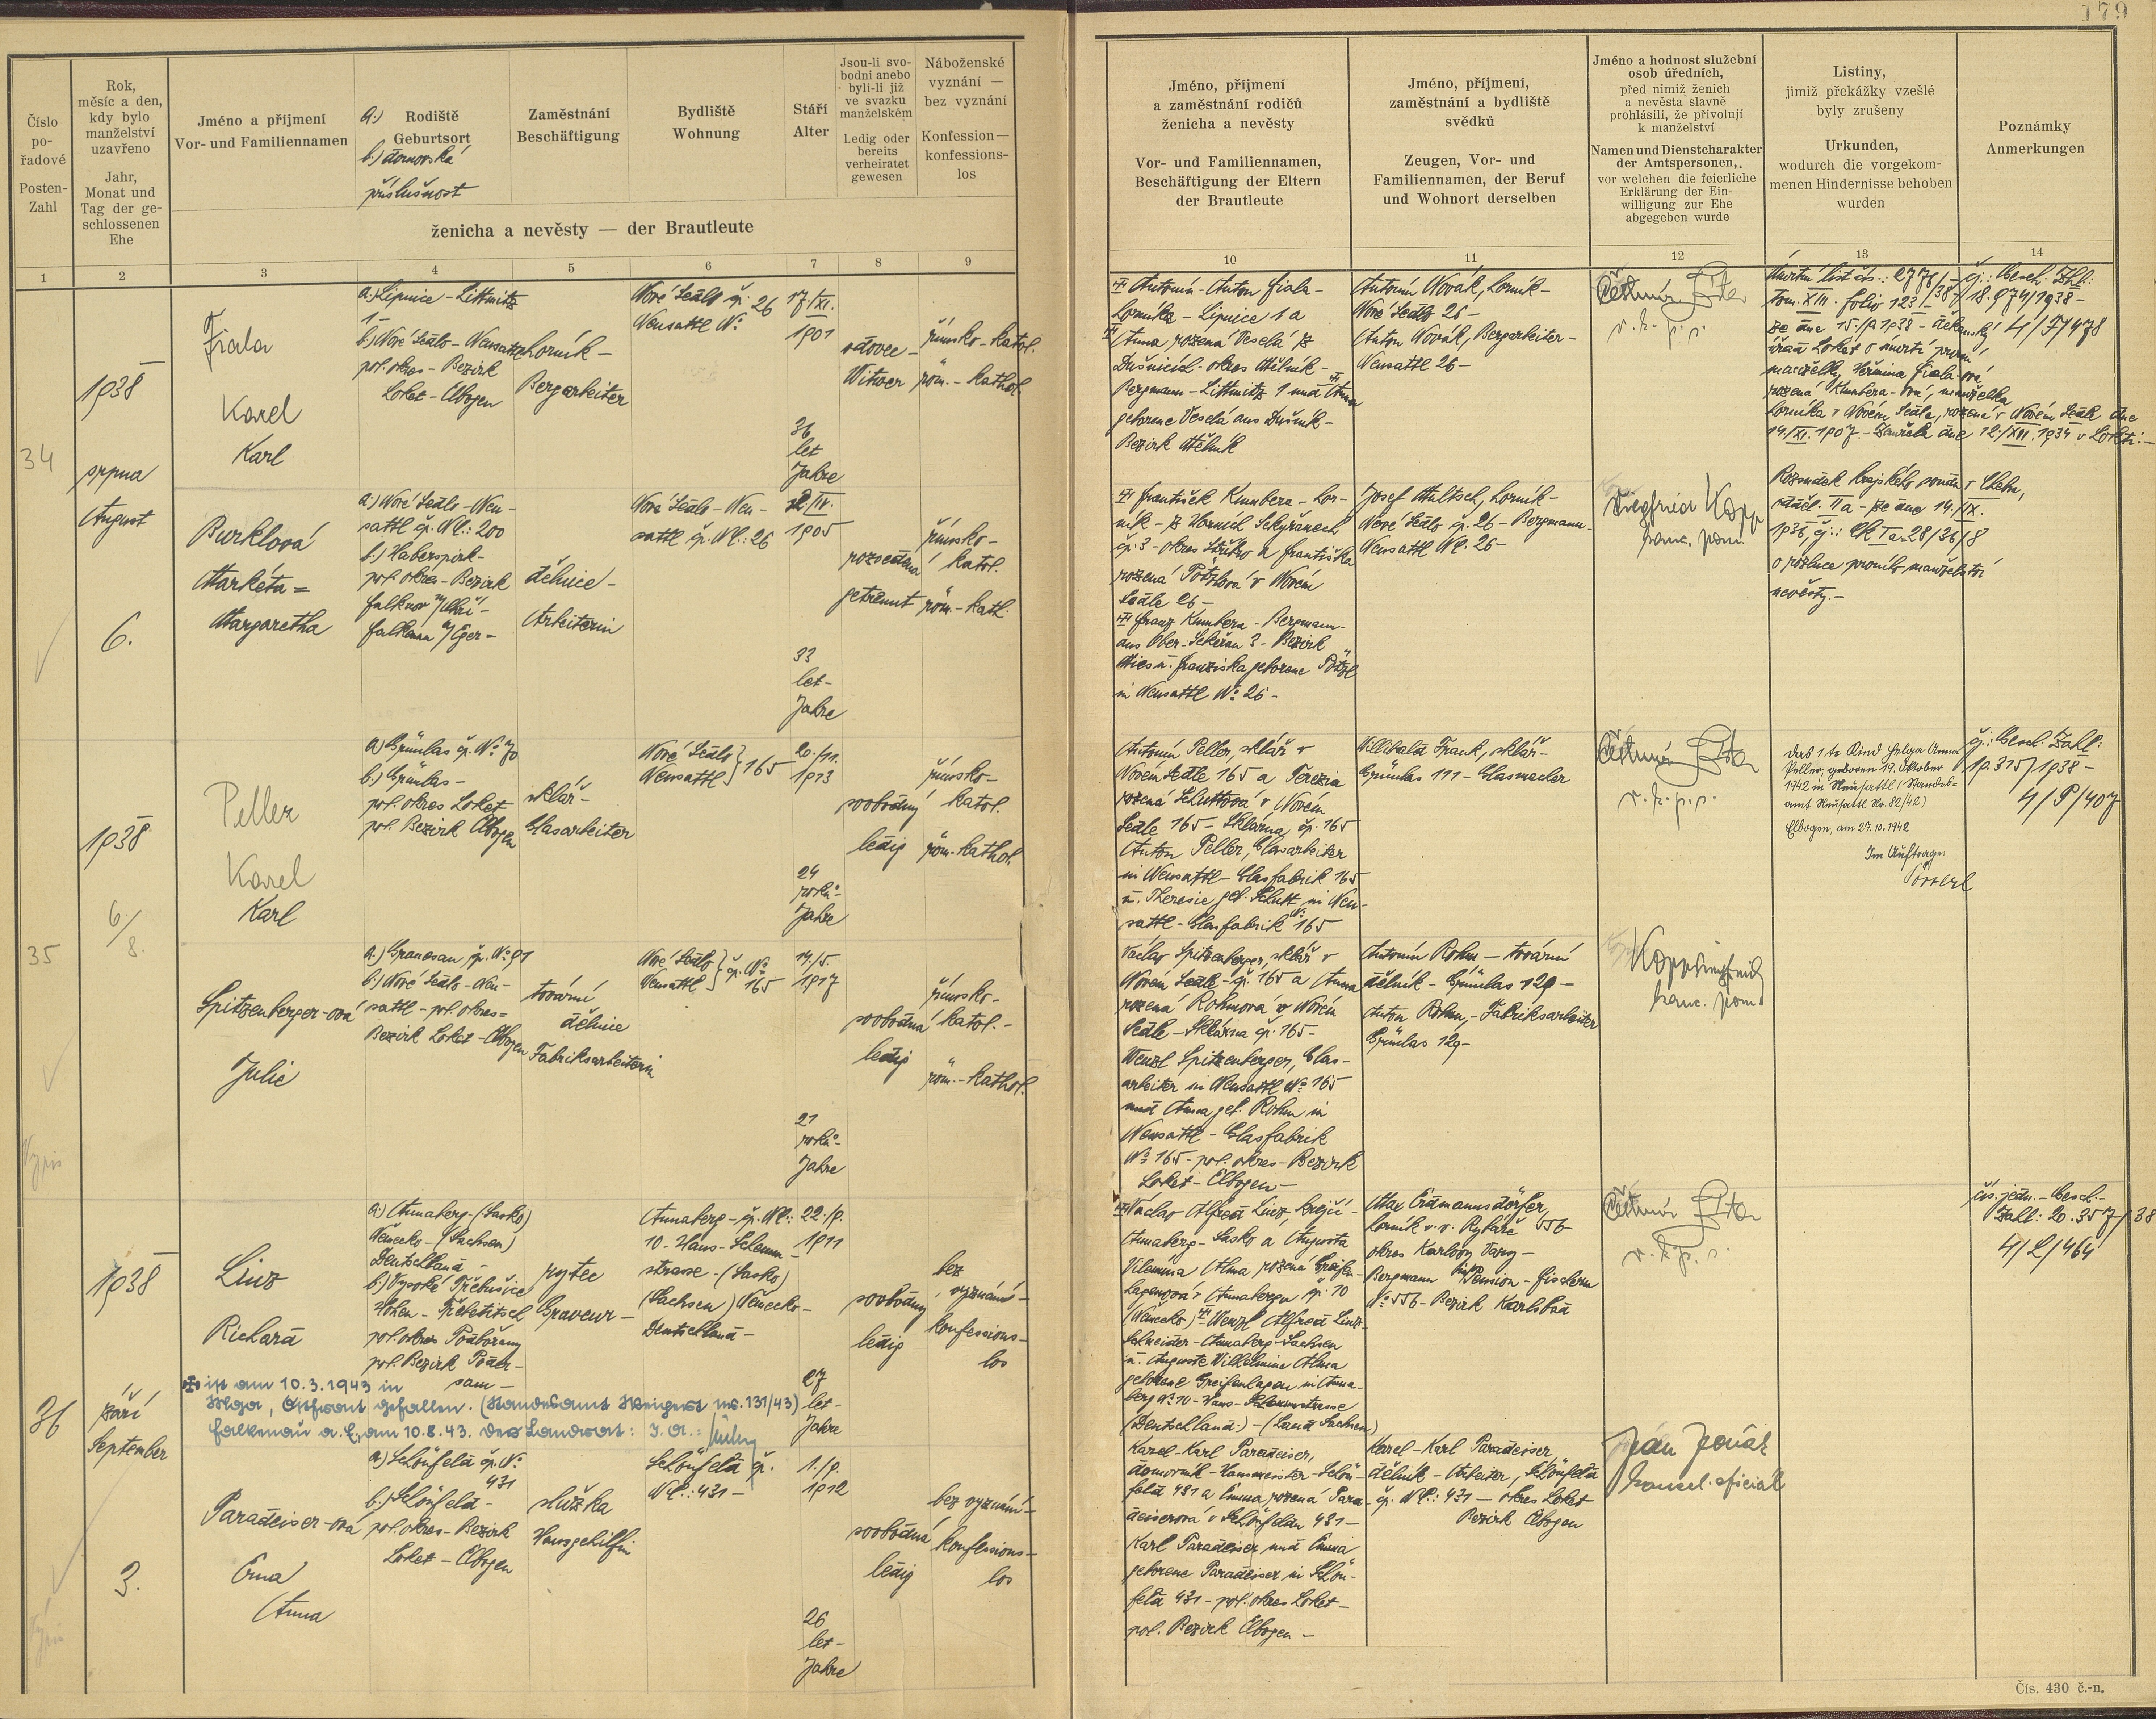 179
Číslo
po-
řadové
Posten-
Zahl
Rok,
měsíc a den,
kdy bylo
manželství
uzavřeno
Jahr,
Monat und
Tag der ge-
schlossenen
Ehe
Jméno a příjmení
Vor- und Familiennamen
a.) Rodiště
Geburtsort
b.) domovská
příslušnost
Zaměstnání
Beschäftigung
Bydliště
Wohnung
Stáří
Alter
Jsou-li svo-
bodni anebo
byli-li již
ve svazku
manželském
Ledig oder
bereits
verheiratet
gewesen
Náboženské
vyznání —
bez vyznání
Konfession—
konfessions-
los
ženicha a nevěsty — der Brautleute
Jméno, příjmení
a zaměstnání rodičů
ženicha a nevěsty
Vor- und Familiennamen,
Beschäftigung der Eltern
der Brautleute
Jméno, příjmení,
zaměstnání a bydliště
svědků
Zeugen, Vor- und
Familiennamen, der Beruf
und Wohnort derselben
Jméno a hodnost služební
osob úředních,
před nimiž ženich
a nevěsta slavně
prohlásili, že přivolují
k manželství
Namen und Dienstcharakter
der Amtspersonen,
vor welchen die feierliche
Erklärung der Ein-
willigung zur Ehe
abgegeben wurde
Listiny,
jimiž překážky vzešlé
byly zrušeny
Urkunden,
wodurch die vorgekom-
menen Hindernisse behoben
wurden
Poznámky
Anmerkungen
1 2 3 4 5 6 7 8 9 10 11 12 13 14
34
1938
srpna
August
6.
Fiala
Karel
Karl
a.) Lipnice - Littmitz
1-
b.) Nové Sedlo - Neusattl
pol. okres - Bezirk
Loket - Elbogen
horník -
Bergarbeiter
Nové Sedlo čp. 26
Neusattl No
17/XI.
1901
36
let
Jahre
vdovec -
Witwer
římsko-katol.
röm.-kathol.
Antonín - Anton Fiala -
horníka - Lipnice 1 a
Anna rozená Veselá z
Dušník - okres Mělník -
Bergmann - Littmitz 1 und Anna
geborene Veselá aus Dušník -
Bezirk Mělník
Antonín Novák, horník -
Nové Sedlo 26 -
Anton Novák, Bergarbeiter -
Neusattl 26 -
Čestmír
v. k. p. p.
Úmrtní list čís.: 2776/38
tom. XIII. folio 123 -
ze dne 15./9 1938 - děkanský
úřad Loket o úmrtí první
manželky Hermina Fiala-ová
rozená Kumbera-ová, manželka
horníka v Novém Sedle, rozená v Novém Sedle dne
14/XI. 1907 - zemřela dne 12./XII. 1934 v Lokti. -
čj.: Gesch. Zhl:
18.974/1938 -
4/F/478
Burklová
Markéta =
Margaretha
a.) Nové Sedlo - Neu-
sattl čp. No.: 200
b.) Haberspirk -
pol. okres - Bezirk
Falknov n/Ohří -
Falkenau a/Eger -
dělnice -
Arbeiterin
Nové Sedlo - Neu-
sattl čp. No.: 26
1905
33
let -
Jahre
rozvedená
getrennt
římsko-
katol.
röm.-kath.
František Kumbera - hor-
ník - z Horních Sekyřanech
čp. 3 - okres Stříbro a Františka
rozená Pötzlová v Novém
Sedle 26 -
Franz Kumbera - Bergmann -
aus Ober-Sekeřan 3 - Bezirk
Mies u. Franziska geborene Pötzl
in Neusattl No 26 -
Josef Hultsch, horník -
Nové Sedlo čp. 26 - Bergmann
Neusattl No. 26 -
Siegfried Kopp
kanc. pom.
Rozsudek krajského soudu v Chebu,
odděl. IIa - ze dne 14./IX.
1936, čj.: Ck Ia 28/36/8
o rozluce prvního manželství
nevěsty. -
35
Výpis
1938
6/
8.
Peller
Karel
Karl
a.) Grünlas čp. No 70
b.) Grünlas -
pol. okres Loket
pol. Bezirk Elbogen
sklář -
Glasarbeiter
Nové Sedlo
Neusattl } 165
20./11.
1913
24
roků -
Jahre
svobodný
ledig
římsko-
katol.
röm.-kathol.
Antonín Peller, sklář v
Novém Sedle 165 a Terezia
rozená Schuttová v Novém
Sedle 165 - Sklárna čp. 165
Anton Peller, Glasarbeiter
in Neusattl - Glasfabrik 165
u. Theresie geb. Schutt in Neu-
sattl - Glasfabrik No 165
Willibald Frank, sklář -
Grünlas 111 - Glasmacher
Čestmír
v. k. p. p.
Das 1te Kind Helga Anna
Peller, geboren 19. Oktober
1942 in Neusattl (Standes-
amt Neusattl No. 82/42)
Elbogen, am 27.10.1942
Im Auftrage:
čj.: Gesch. Zahl:
19.315/1938 -
4/P/407
Spitzenberger-ová
Julie
a.) Granesau, čp. No 91
b.) Nové Sedlo - Neu-
sattl - pol. okres =
Bezirk Loket - Elbogen
tovární
dělnice
Fabriksarbeiterin
Nové Sedlo
Neusattl } čp. No
165
14./5.
1917
21
roků -
Jahre
svobodná
ledig
římsko-
katol. -
röm.-kathol.
Václav Spitzenberger, sklář v
Novém Sedle - čp. 165 a Anna
rozená Rohmová v Novém
Sedle - Sklárna čp. 165 -
Wenzl Spitzenberger, Glas-
arbeiter in Neusattl No 165
und Anna geb. Rohm in
Neusattl - Glasfabrik
No 165 - pol. okres - Bezirk
Loket - Elbogen -
Antonín Rohm - tovární
dělník - Grünlas 129 -
Anton Rohm, - Fabriksarbeiter
Grünlas 129 -
Kopp Siegfried
kanc. pom.
36
1938
září
September
3.
Linz
Richard
a.) Annaberg - (Sasko)
Německo - (Sachsen)
Deutschland -
b.) Vysoké Třebušice
Hohen - Trebetitsch
pol. okres Podbořany
pol. Bezirk Poder-
sam -
rytec
Graveur -
Annaberg - čp. No.:
10 - Hans - Schemm -
strasse - (Sasko)
(Sachsen) Německo -
Deutschland -
22./9.
1911
27
let -
Jahre
svobodný
ledig
bez
vyznání -
konfessions-
los
ist am 10.3.1943 in
Mga, Ostfront gefallen. (Standesamt Steigert nr. 131/43)
Falkenau a. E., am 10.8.43. Der Landrat: I. A.:
Václav Alfred Linz, krejčí -
Annaberg - Sasko a Augusta
Vilemina Alma rozená Greifen-
hagenová v Annabergu čp. 10
(Německo) Wenzl Alfred Linz -
Schneider - Annaberg - Sachsen
u. Auguste Wilhelmine Alma
geborene Greifenhagen in Anna-
berg No 10 - Hans - Schemmstrasse
(Deutschland) - (Land Sachsen)
Max Erdmannsdörfer,
horník v. v. Rybáře 556
okres Karlovy Vary -
Bergmann in Pension - Fischern
No 556 - Bezirk Karlsbad
Čestmír
čís. jedn. - Gesch. -
Zahl: 20.357/38
4/L/464
Paradeiser-ová
Erna
Anna
a.) Schönfeld čp. No.
431
b.) Schönfeld -
pol. okres - Bezirk
Loket - Elbogen
služka
Hausgehilfin
Schönfeld čp.
No.: 431 -
1./9.
1912
26
let -
Jahre
svobodná
ledig
bez vyznání -
konfessions-
los
Karel - Karl Paradeiser,
domovník - Hausmeister - Schön-
feld 431 a Emma rozená Para-
deiserová v Schönfeldu 431 -
Karl Paradeiser und Emma
geborene Paradeiser in Schön-
feld 431 - pol. okres Loket -
pol. Bezirk Elbogen -
Karel - Karl Paradeiser,
dělník - Arbeiter, Schönfeld
čp. No.: 431 - okres Loket
Bezirk Elbogen
kancel. oficiál
Čís. 430 č.-n.